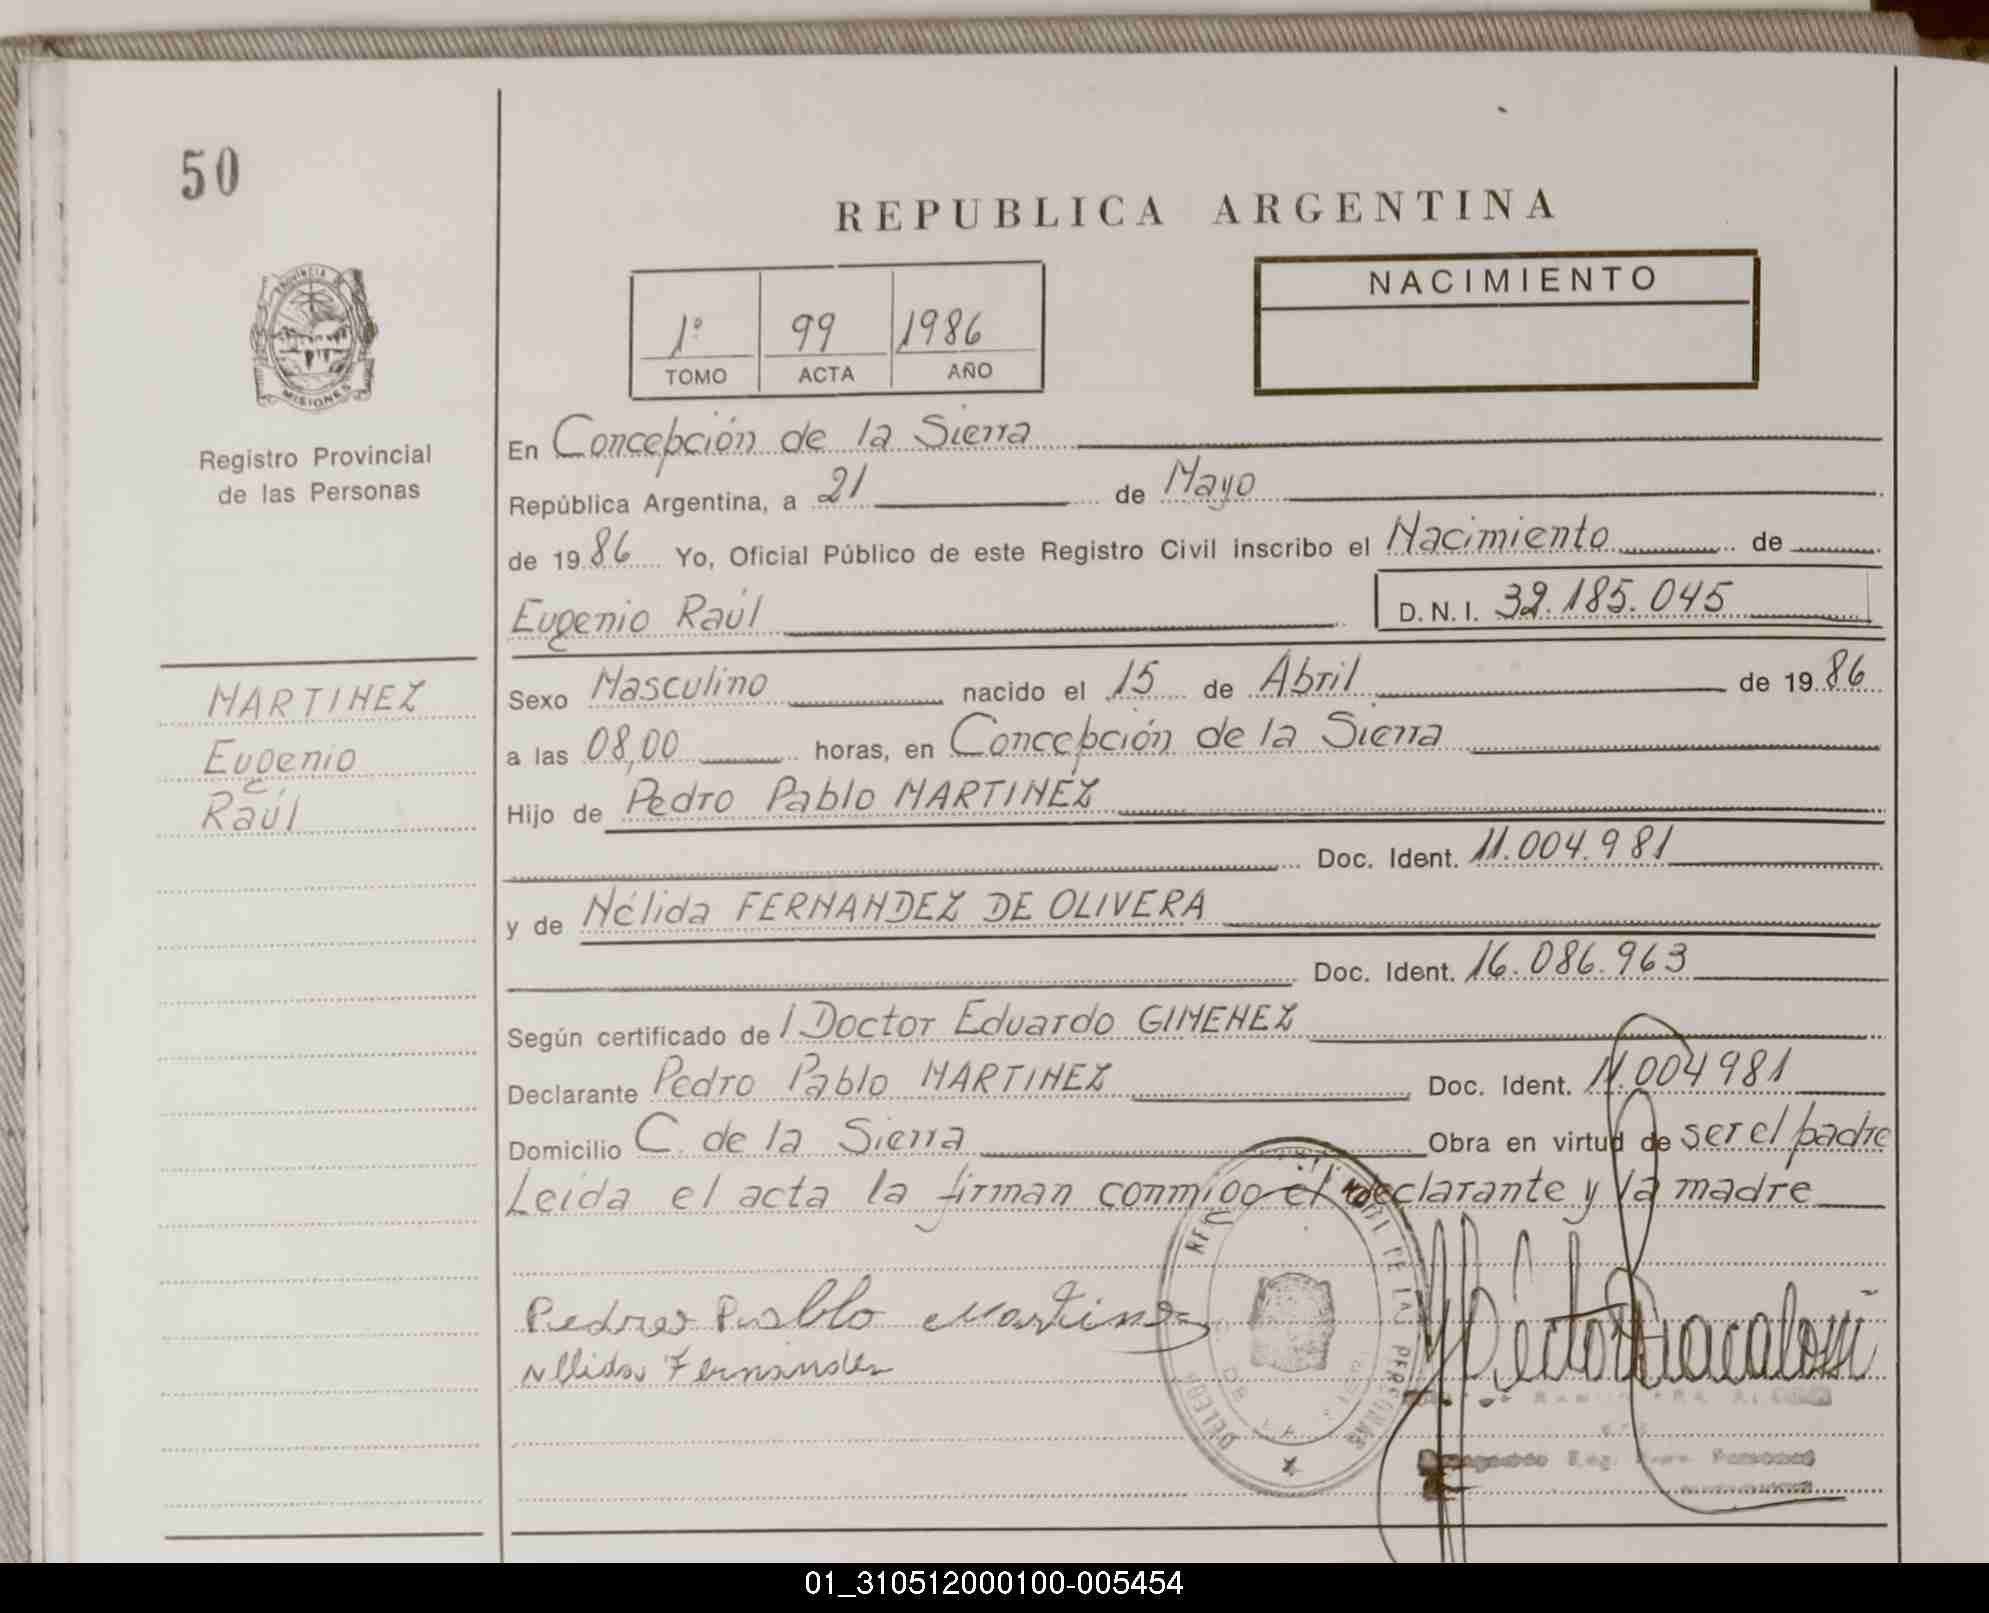 50
REPUBLICA ARGENTINA
PROVINCIA
MISIONES
Registro Provincial
de las Personas
1º 99 1986
TOMO ACTA AÑO
NACIMIENTO
En Concepción de la Sierra
República Argentina, a 21 de Mayo
de 1986 Yo, Oficial Público de este Registro Civil inscribo el Nacimiento de
Eugenio Raúl D.N.I. 32.185.045
MARTINEZ
Eugenio
Raúl
Sexo Masculino nacido el 15 de Abril de 1986
a las 08,00 horas, en Concepción de la Sierra
Hijo de Pedro Pablo MARTINEZ
Doc. Ident. 11.004.981
y de Nélida FERNANDEZ DE OLIVERA
Doc. Ident. 16.086.963
Según certificado de l Doctor Eduardo GIMENEZ
Declarante Pedro Pablo MARTINEZ Doc. Ident. 11.004981
Domicilio C. de la Sierra Obra en virtud de ser el padre
Leída el acta la firman conmigo el declarante y la madre
Pedro Pablo Martinez
Nllida Fernandez
DE LAS PERSONAS
01_310512000100-005454